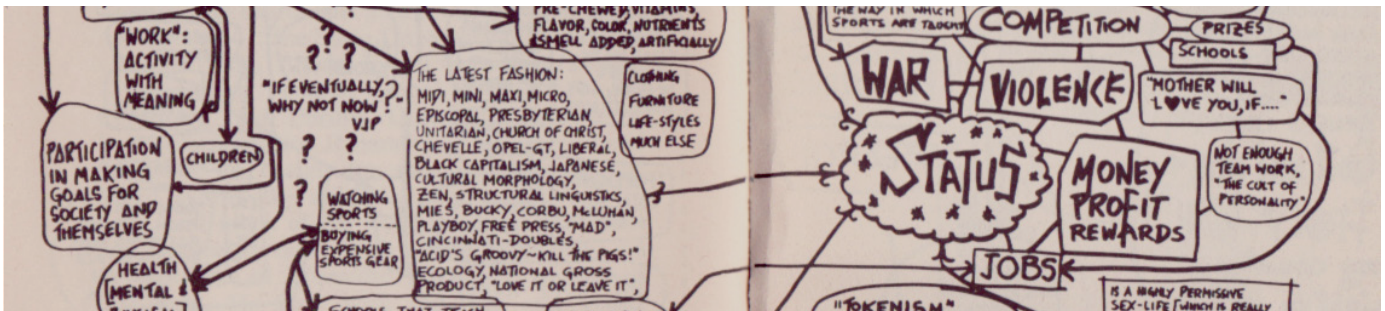 "WORK":
ACTIVITY
WITH
MEANING
PARTICIPATION
IN MAKING
GOALS FOR
SOCIETY AND
THEMSELVES
CHILDREN
HEALTH
[MENTAL &
?
? ?
"IF EVENTUALLY,
WHY NOT NOW?"
VJP
?
? ?
?
WATCHING
SPORTS
BUYING
EXPENSIVE
SPORTS GEAR
PRE-CHEWED, VITAMINS,
FLAVOR, COLOR, NUTRIENTS
& SMELL ADDED, ARTIFICIALLY
THE LATEST FASHION:
MIDI, MINI, MAXI, MICRO,
EPISCOPAL, PRESBYTERIAN,
UNITARIAN, CHURCH OF CHRIST,
CHEVELLE, OPEL-GT, LIBERAL,
BLACK CAPITALISM, JAPANESE,
CULTURAL MORPHOLOGY,
ZEN, STRUCTURAL LINGUISTICS,
MIES, BUCKY, CORBU, McLUHAN,
PLAYBOY, FREE PRESS, "MAD",
CINCINNATI-DOUBLES,
"ACID'S GROOVY~KILL THE PIGS!"
ECOLOGY, NATIONAL GROSS
PRODUCT, "LOVE IT OR LEAVE IT",
CLOTHING
FURNITURE
LIFE-STYLES
MUCH ELSE
SCHOOLS THAT TEACH
THE WAY IN WHICH
SPORTS ARE TAUGHT
COMPETITION
PRIZES
SCHOOLS
WAR
VIOLENCE
"MOTHER WILL
L♥VE YOU, IF...."
STATUS
MONEY
PROFIT
REWARDS
NOT ENOUGH
TEAM WORK,
"THE CULT OF
PERSONALITY"
JOBS
"TOKENISM"
IS A HIGHLY PERMISSIVE
SEX-LIFE [WHICH IS REALLY